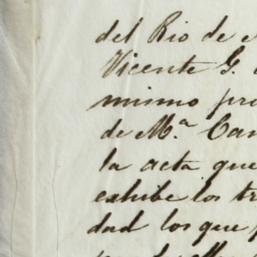 del Rio de
Vicente G.
mismo pro
de M.ª Can
la acta que
exhibe los tr
dad los que